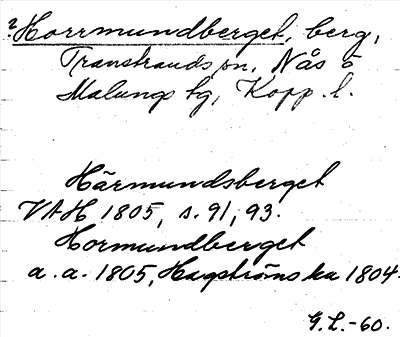 ?Horrmundberget, berg,
Transtrands sn, Nås o
Malungs tg, Kopp. l.
Härmundsberget
VAH 1805, s. 91, 93.
Hormundberget
a. a. 1805, Hagströms ka 1804.
G.L.-60.